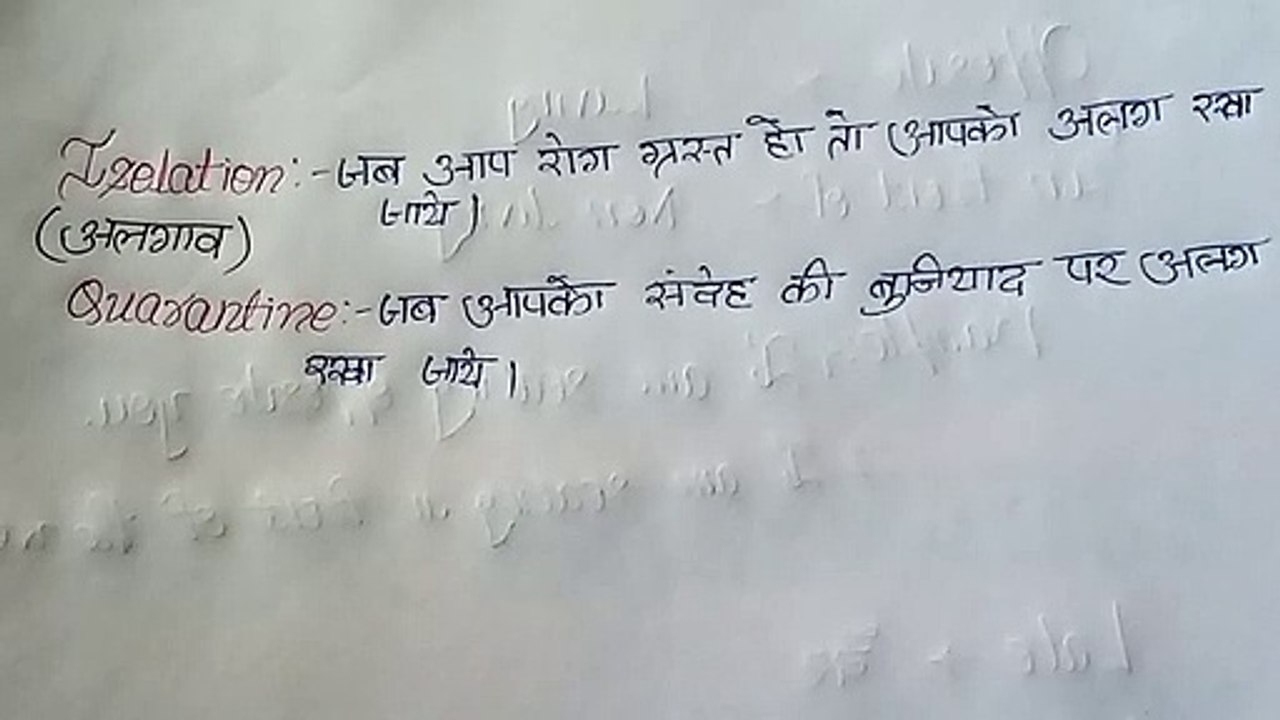 Izelation:- जब आप रोग ग्रस्त हो तो आपको अलग रखा
जाये।
(अलगाव)
Quarantine:- जब आपको संदेह की बुनियाद पर अलग
रखा जाये।